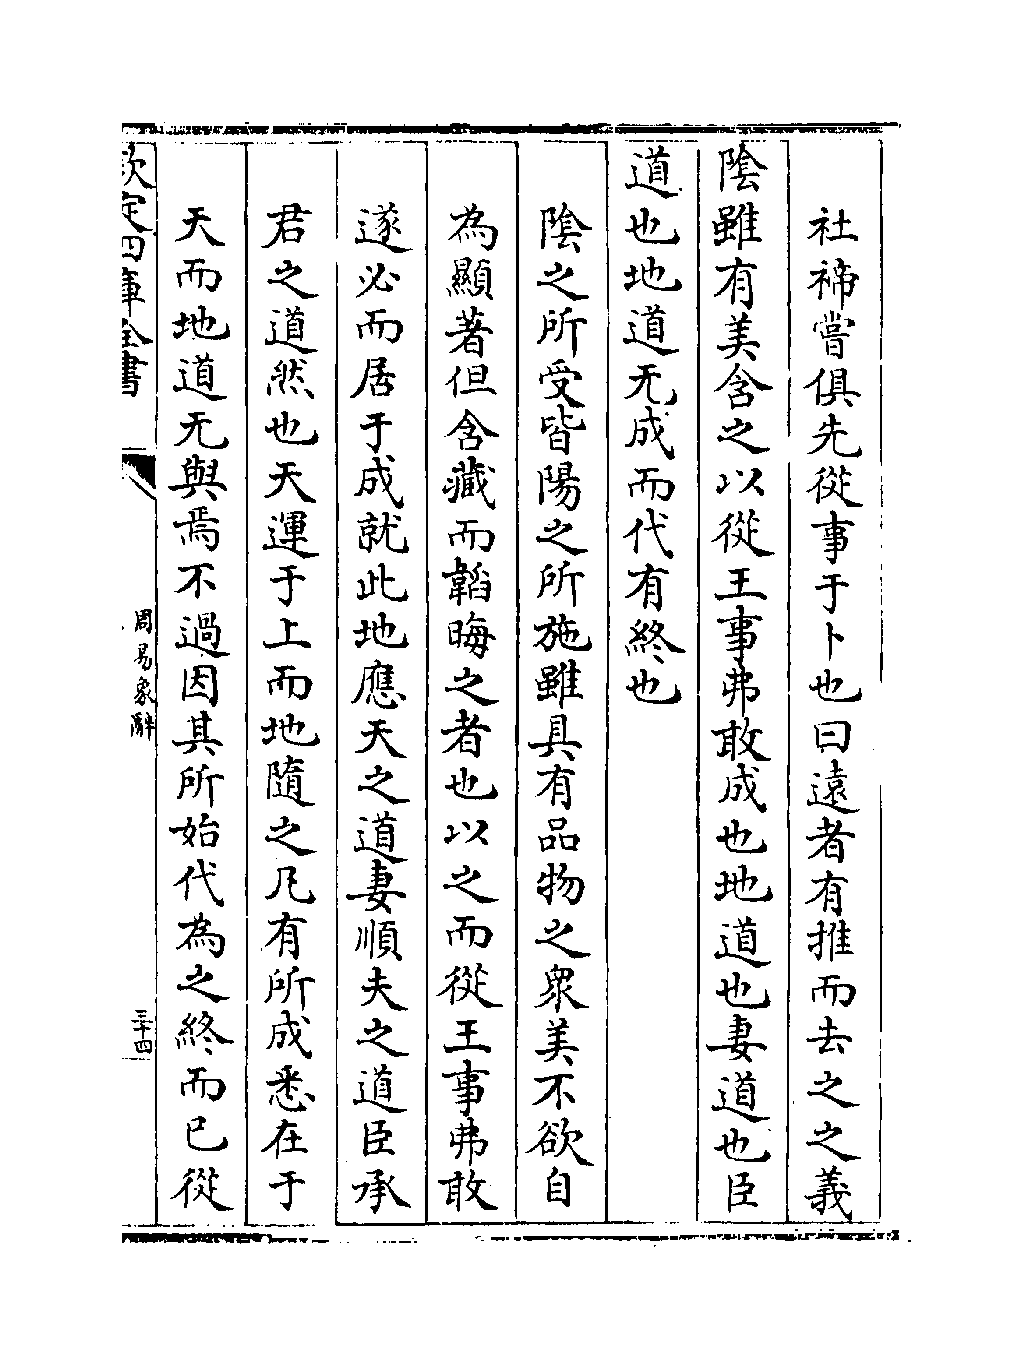 社禘嘗俱先從事于卜也曰遠者有推而去之之義
陰雖有美含之以從王事弗敢成也地道也妻道也臣
道也地道无成而代有終也
陰之所受皆陽之所施雖具有品物之衆美不欲自
為顯著但含藏而韜晦之者也以之而從王事弗敢
遂必而居于成就此地應天之道妻順夫之道臣承
君之道然也天運于上而地隨之凡有所成悉在于
天而地道无與焉不過因其所始代為之終而已從
欽定四庫全書
周易象辭
三十四